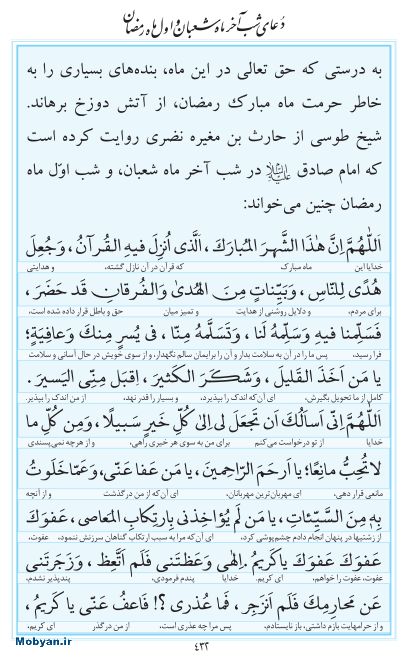 دعای شب آخر ماه شعبان و اول ماه رمضان
به درستی که حق تعالی در این ماه، بنده‌های بسیاری را به
خاطر حرمت ماه مبارک رمضان، از آتش دوزخ برهاند.
شیخ طوسی از حارث بن مغیره نضری روایت کرده است
که امام صادق علیه‌السلام در شب آخر ماه شعبان، و شب اوّل ماه
رمضان چنین می‌خواند:
اَللّٰهُمَّ اِنَّ هٰذَا الشَّهرَ المُبارَكَ، اَلَّذى اُنزِلَ فيهِ القُرآنُ، وَجُعِلَ
خدایا این ماه مبارک که قرآن در آن نازل گشته، و هدایتی
هُدًى لِلنّاسِ، وَبَيِّناتٍ مِنَ الهُدىٰ وَالفُرقانِ قَد حَضَرَ،
برای مردم، و دلایل روشنی از هدایت و تمیز میان حق و باطل قرار داده شده است،
فَسَلِّمنا فيهِ وَسَلِّمهُ لَنا، وَتَسَلَّمهُ مِنّا، فى يُسرٍ مِنكَ وَعافِيَةٍ؛
فرا رسید، پس ما را در آن به سلامت بدار و آن را برایمان سالم نگهدار، و از سوی خویش در حال آسانی و سلامت
يا مَن اَخَذَ القَليلَ، وَشَكَرَ الكَثيرَ، اِقبَل مِنِّى اليَسيرَ.
کامل از ما تحویل بگیرش، ای آن‌که اندک را بپذیرد، و بسیار را قدر نهد، از من اندک را بپذیر.
اَللّٰهُمَّ اِنّى اَسأَلُكَ اَن تَجعَلَ لى اِلىٰ كُلِّ خَيرٍ سَبيلًا، وَمِن كُلِّ ما
خدایا از تو درخواست می‌کنم برای من به سوی هر خیری راهی، و از هرچه نمی‌پسندی
لا تُحِبُّ مانِعًا؛ يا اَرحَمَ الرّاحِمينَ، يا مَن عَفا عَنّى، وَعَمّا خَلَوتُ
مانعی قرار دهی، ای مهربان‌ترین مهربانان، ای آن‌که از من در گذشت و از آنچه
بِهِ مِنَ السَّيِّئاتِ، يا مَن لَم يُؤاخِذنى بِارتِكابِ المَعاصى، عَفوَكَ
از زشتیها در پنهان انجام دادم چشم‌پوشی کرد، ای آن‌که مرا به سبب ارتکاب گناهان سرزنش ننمود، عفوت،
عَفوَكَ عَفوَكَ يا كَريمُ. اِلٰهى وَعَظتَنى فَلَم اَتَّعِظ، وَزَجَرتَنى
عفوت، عفوت را خواهم، ای کریم. خدایا پندم فرمودی، پندپذیر نشدم،
عَن مَحارِمِكَ فَلَم اَنزَجِر، فَما عُذرى؟! فَاعفُ عَنّى يا كَريمُ،
و از حرامهایت بازم داشتی، باز نایستادم، پس مرا چه عذری است، از من در گذر ای کریم،
۴۳۲
Mobyan.ir